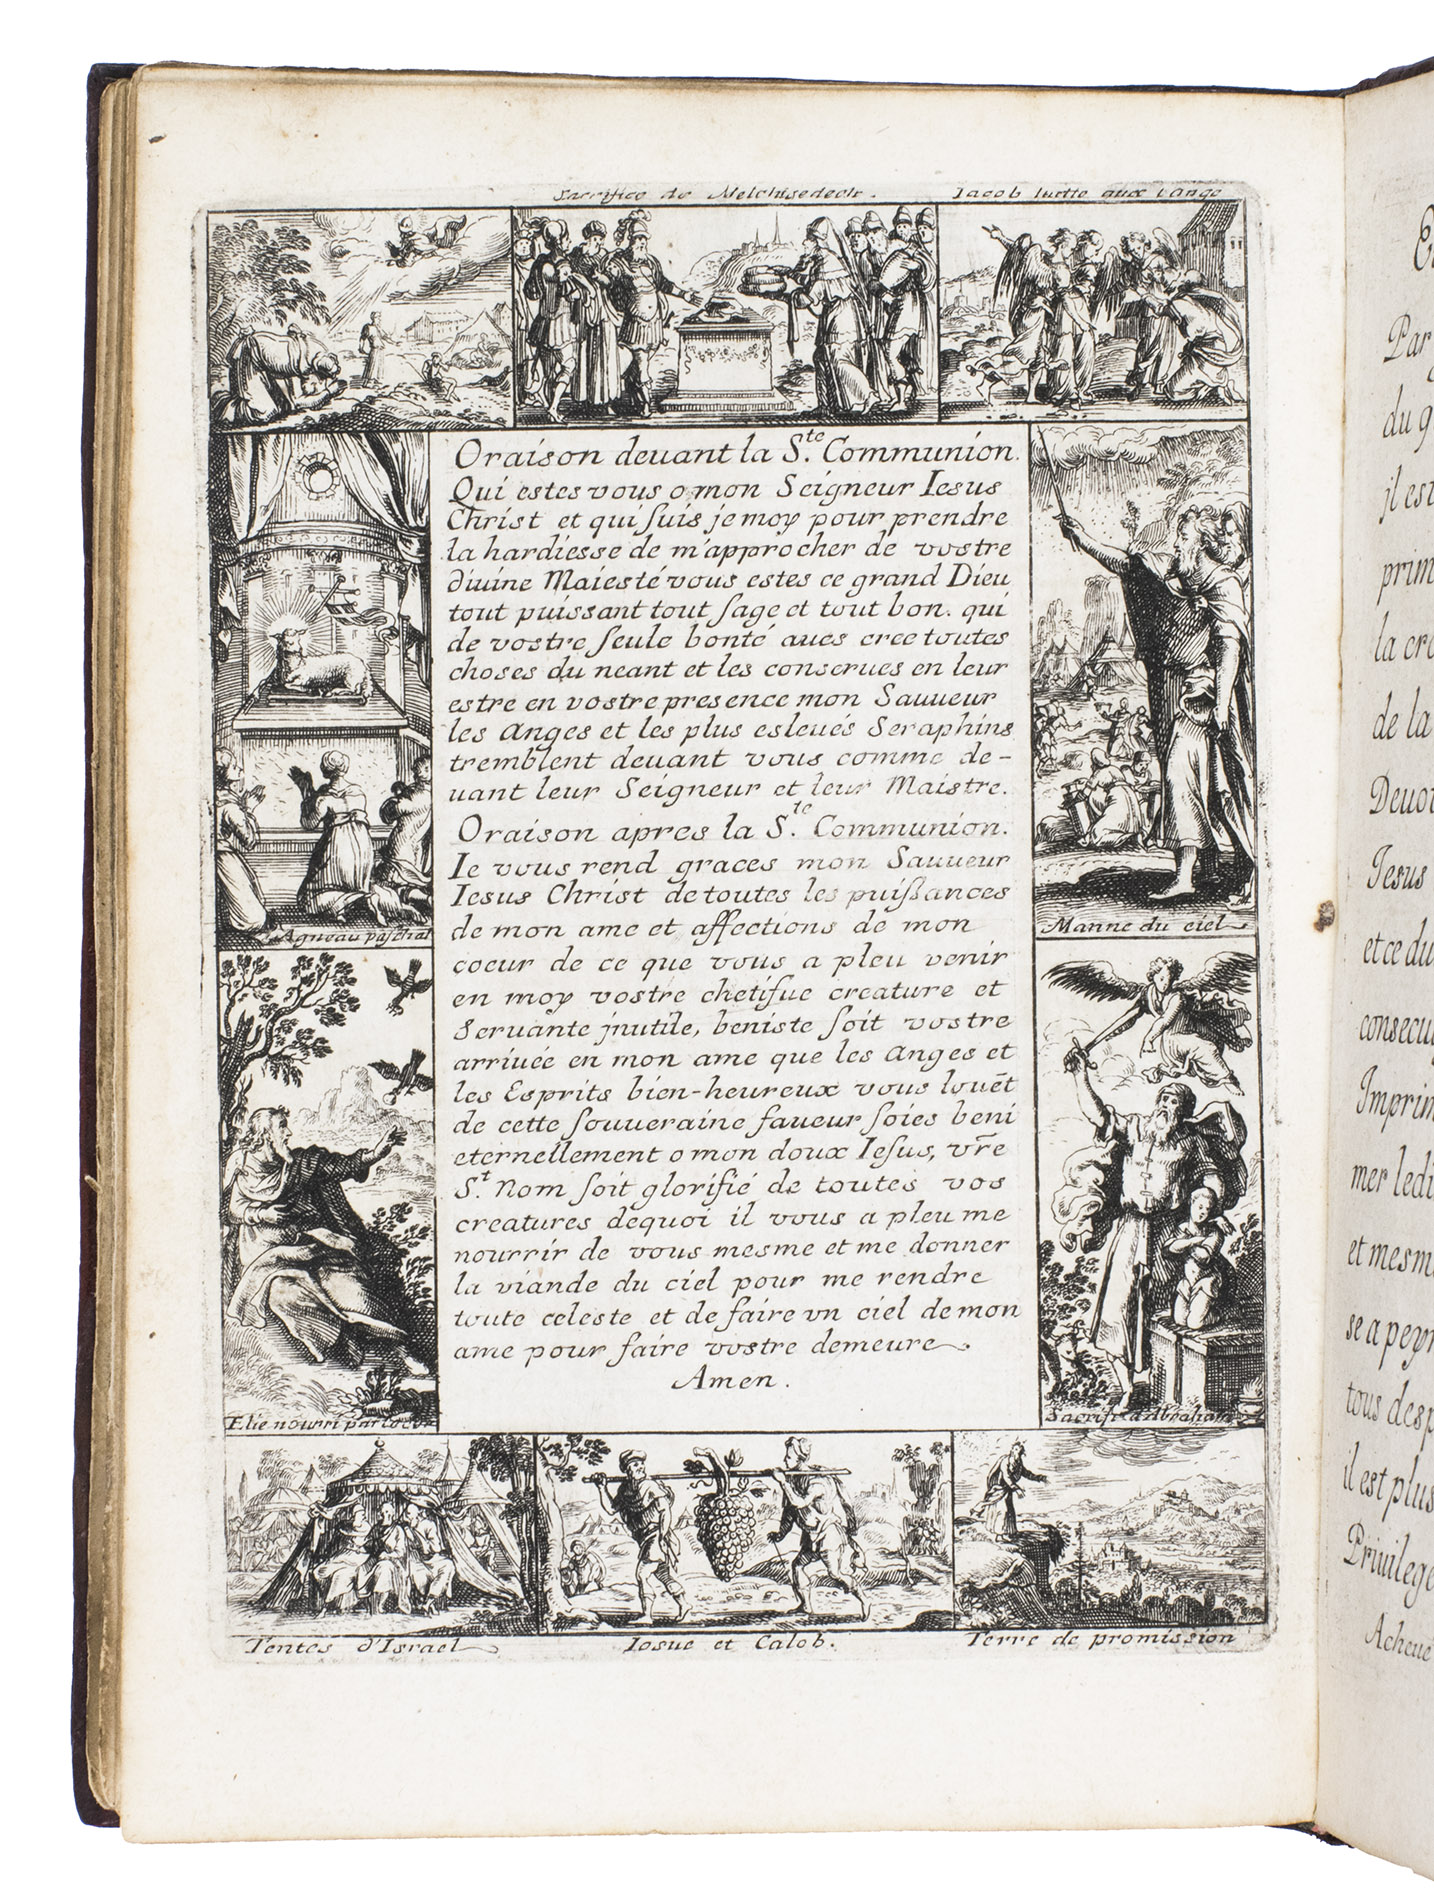 Sacrifice de Melchisedech.
Iacob luitte aux l'Ange
Oraison deuant la S.te Communion.
Qui estes vous o mon Seigneur Iesus
Christ et qui ſuis je moy pour prendre
la hardiesse de m'approcher de vostre
diuine Maiesté vous estes ce grand Dieu
tout puissant tout ſage et tout bon. qui
de vostre ſeule bonté aues cree toutes
choses du neant et les conserues en leur
estre en vostre presence mon Sauueur
les Anges et les plus esleués Seraphins
tremblent deuant vous comme de-
uant leur Seigneur et leur Maistre.
Oraison apres la S.te Communion.
Ie vous rend graces mon Sauueur
Iesus Christ de toutes les puiſſances
de mon ame et affections de mon
coeur de ce que vous a pleu venir
en moy vostre chetifue creature et
Seruante jnutile, beniste ſoit vostre
arriuée en mon ame que les Anges et
les Esprits bien-heureux vous louēt
de cette ſouueraine faueur ſoies beni
eternellement o mon doux Ieſus, vr̄e
S.t Nom ſoit glorifié de toutes vos
creatures dequoi il vous a pleu me
nourrir de vous mesme et me donner
la viande du ciel pour me rendre
toute celeste et de faire vn ciel de mon
ame pour faire vostre demeure.
Amen.
Agneau paschal
Manne du ciel
Elie nourri par
Sacrifi d'Abraham
Tentes d'Israel
Iosue et Calob.
Terre de promission
Par
du g
jl est
prim
la cre
de la
Deuot
Jesus
et ce du
consecu
Imprim
mer ledi
et mesm
se a peyn
tous desp
il est plus
Priuilege
Acheue